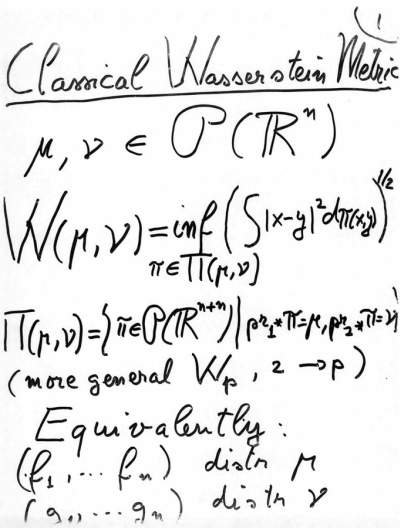 1
Classical Wasserstein Metric
μ, ν ∈ P(ℝⁿ)
W(μ,ν) = inf_{π∈Π(μ,ν)} (∫|x-y|² dπ(x,y))^{1/2}
Π(μ,ν) = {π∈P(ℝⁿ⁺ⁿ) | pr₁*π=μ, pr₂*π=ν}
(more general W_p, 2 → p)
Equivalently:
(f₁, ... fₙ) distr μ
(g₁, ... gₙ) distr ν